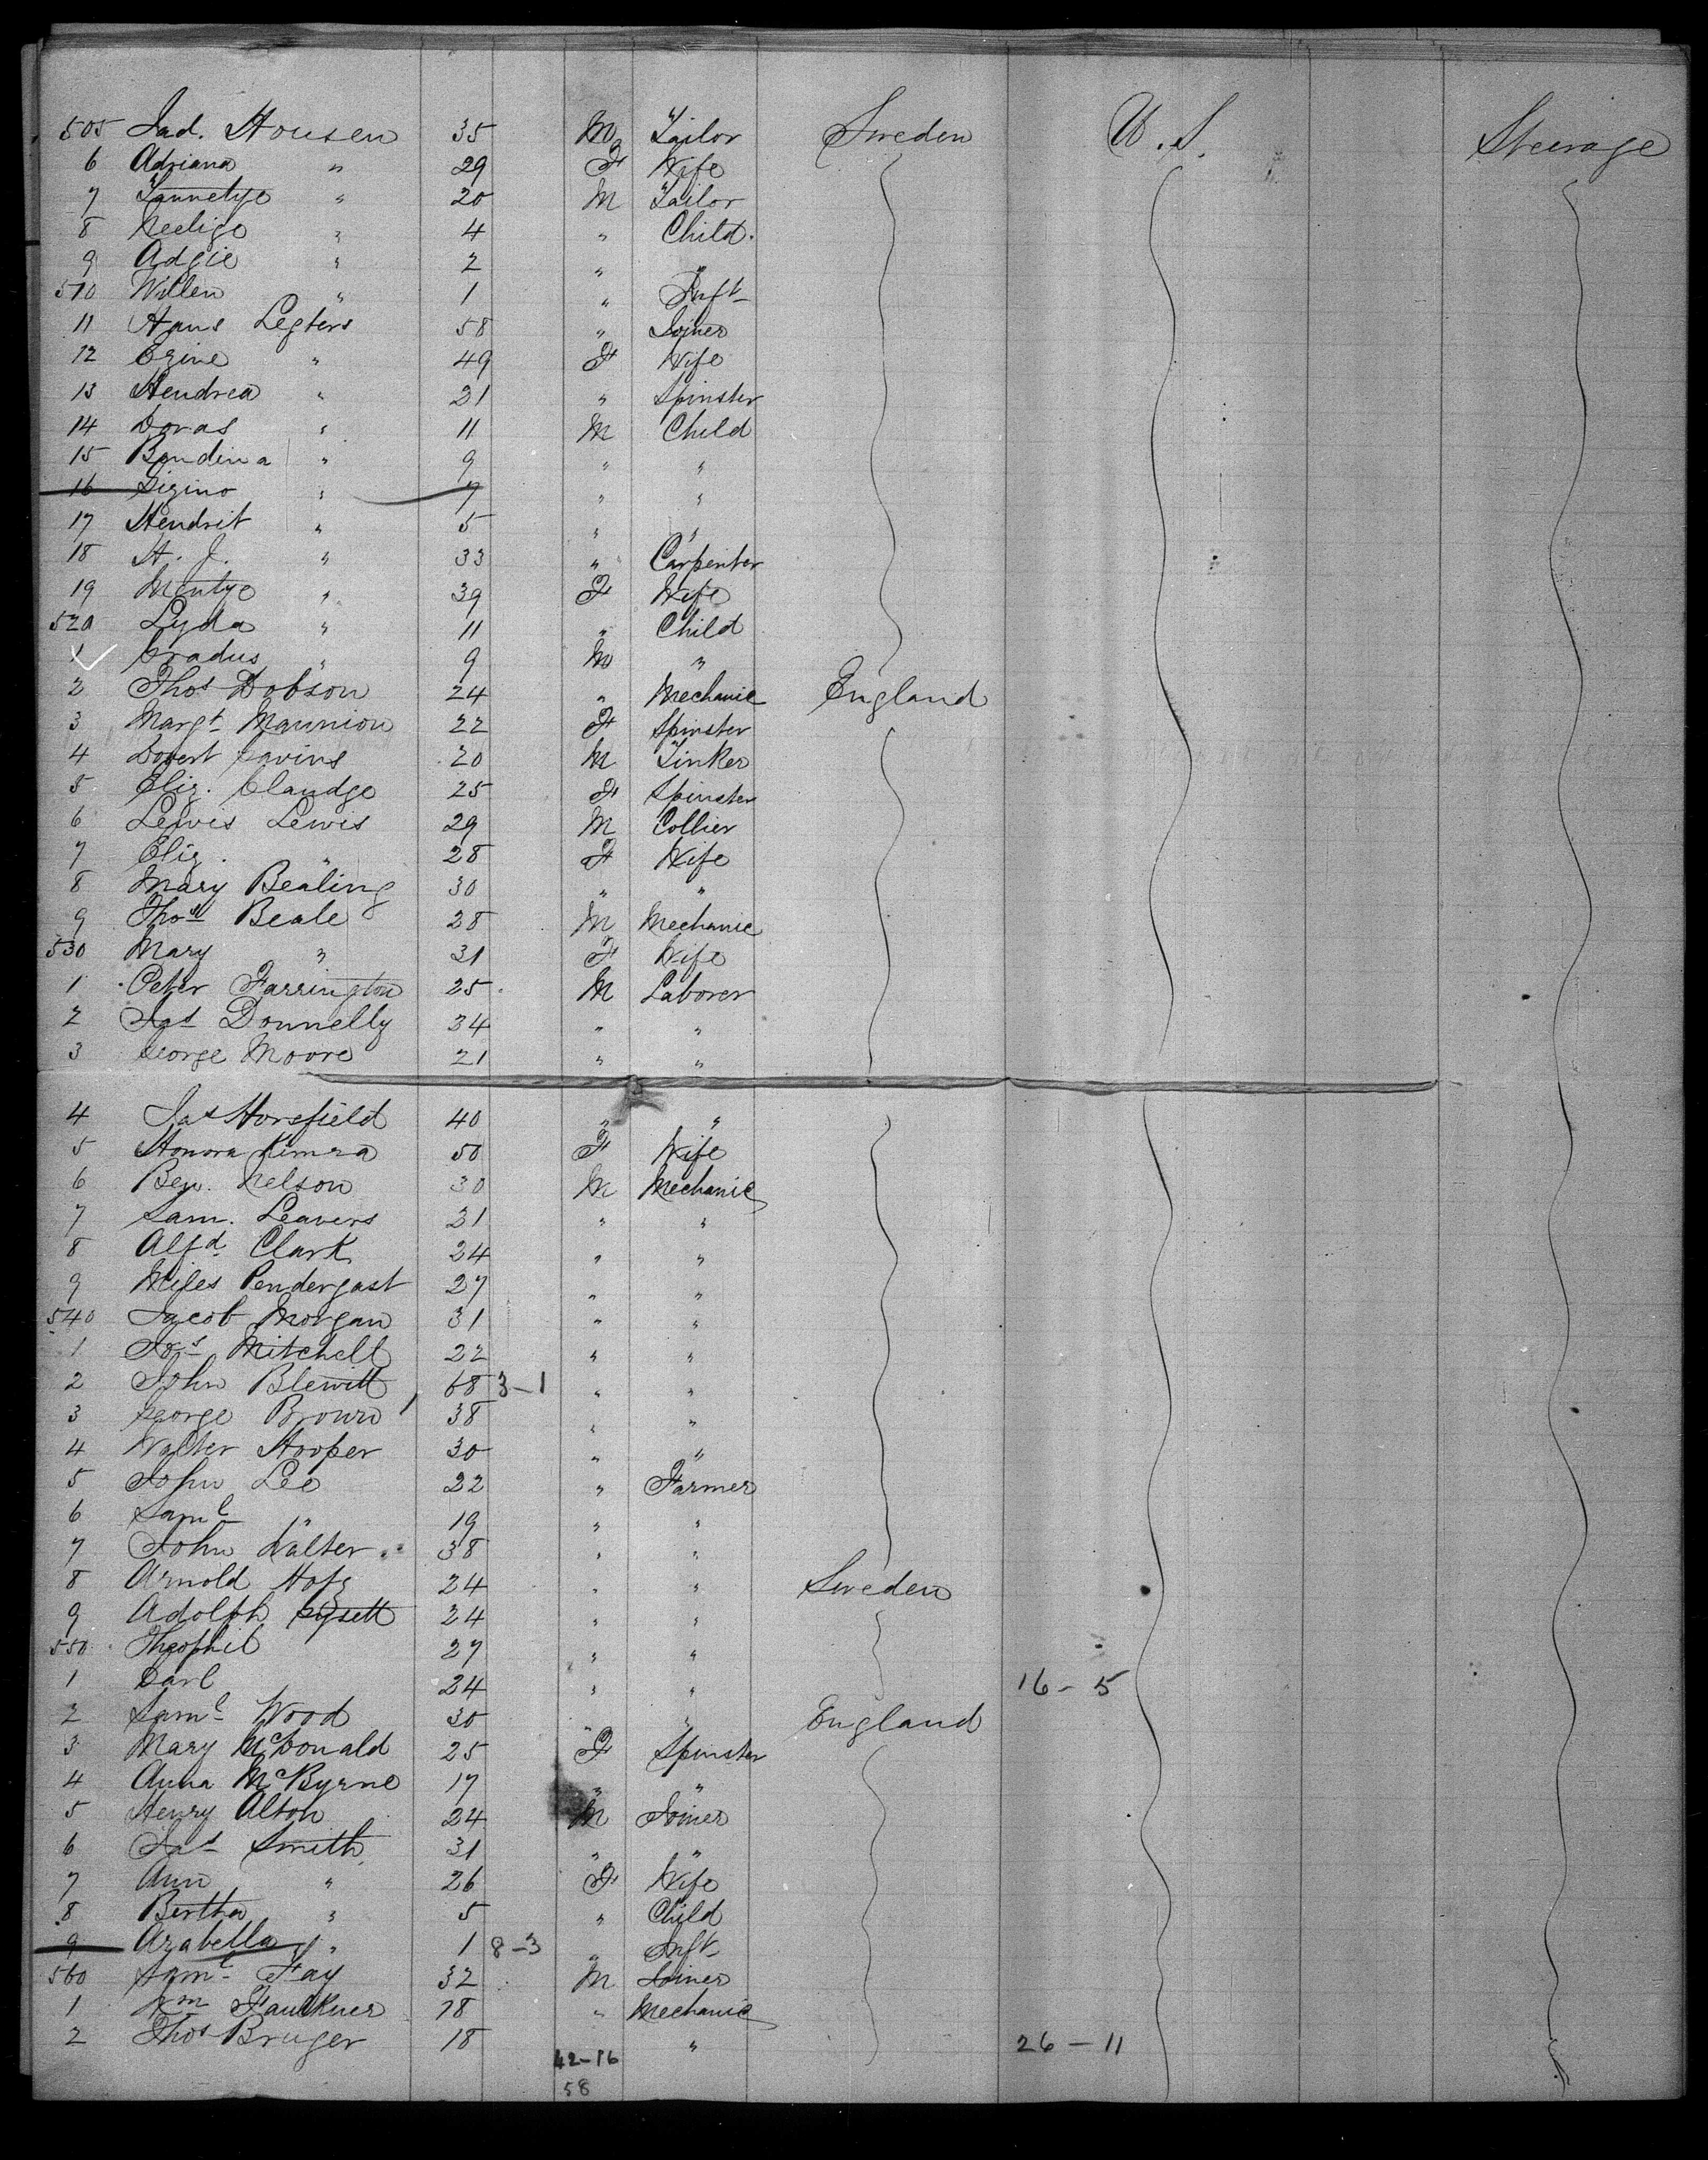 505 Jad. Housen 35 M Tailor Sweden U.S. Steerage
6 Adriana " 29 F Wife
7 Tannetye " 20 M Tailor
8 Neelige " 4 " Child.
9 Adgie " 2 " "
510 Willen " 1 " Inft
11 Hans Legters 58 " Joiner
12 Ezine " 49 F Wife
13 Hendrea " 21 " Spinster
14 Doras " 11 M Child
15 Bandina " 9 " "
16 Sizino " 7 " "
17 Hendrit " 5 " "
18 H. J. " 33 " Carpenter
19 Mentye " 39 F Wife
520 Lyda " 11 " Child
1 Gradus " 9 M "
2 Thos Dobson 24 " Mechanic England
3 Margt Mannion 22 F Spinster
4 20 M Tinker
5 Eliz. Claudge 25 F Spinster
6 Lewis Lewis 29 M Collier
7 Eliz. " 28 F Wife
8 Mary Bealing 30 " "
9 Thos Beale 28 M Mechanic
530 Mary " 31 F Wife
1 Peter Farrington 25 M Laborer
2 Jas Donnelly 34 " "
3 George Moore 21 " "
4 Jas Horsfield 40 " "
5 Honora 50 F Wife
6 Benj. Nelson 30 M Mechanic
7 Sam. Leavers 31 " "
8 Alfd Clark 24 " "
9 Miles Pendergast 27 " "
540 Jacob Morgan 31 " "
1 Jos Mitchell 22 " "
2 John Blewitt 68 3-1 " "
3 George Brown 38 " "
4 Walter Hooper 30 " "
5 John Lee 22 " Farmer
6 Saml " 19 " "
7 John Walter 38 " "
8 Arnold Hofz 24 " " Sweden
9 Adolph 24 " "
550 Theophil 27 " "
1 Carl 24 " " 16-5
2 Saml Wood 30 " " England
3 Mary McDonald 25 F Spinster
4 Anna McByrne 17 " "
5 Henry Alton 24 M Joiner
6 Jas Smith 31 " "
7 Ann " 26 F Wife
8 Bertha " 5 " Child
9 Arabella " 1 8-3 " Inft
560 Saml Fay 32 M Joiner
1 Wm Faulkner 18 " Mechanic
2 Thos Bruger 18 " 26-11
42-16
58